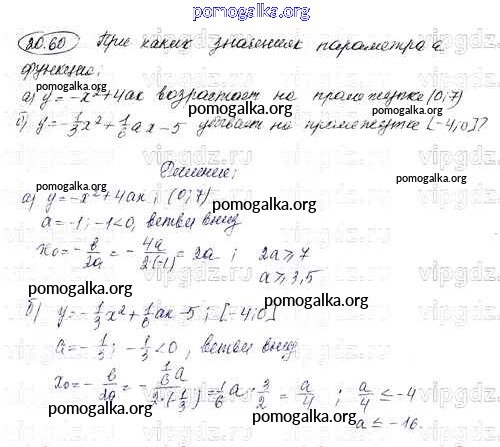 pomogalka.org
20.60 При каких значениях параметра a
функция:
а) y = -x² + 4ax возрастает на промежутке (0; 7)
pomogalka.org pomogalka.org
б) y = -1/3 x² + 1/6 ax - 5 убывает на промежутке [-4; 0]?
pomogalka.org
Решение:
pomogalka.org
а) y = -x² + 4ax ; (0; 7)
pomogalka.org
a = -1; -1 < 0, ветви вниз
x₀ = -b/2a = -4a/2·(-1) = 2a ; 2a ≥ 7
pomogalka.org
a ≥ 3,5
pomogalka.org
б) y = -1/3 x² + 1/6 ax - 5 ; [-4; 0]
pomogalka.org
a = -1/3 ; -1/3 < 0, ветви вниз
pomogalka.org
x₀ = -b/2a = -1/6 a/2·(-1/3) = 1/6 a · 3/2 = a/4 ; a/4 ≤ -4
pomogalka.org
a ≤ -16.
pomogalka.org
vipgdz.ru